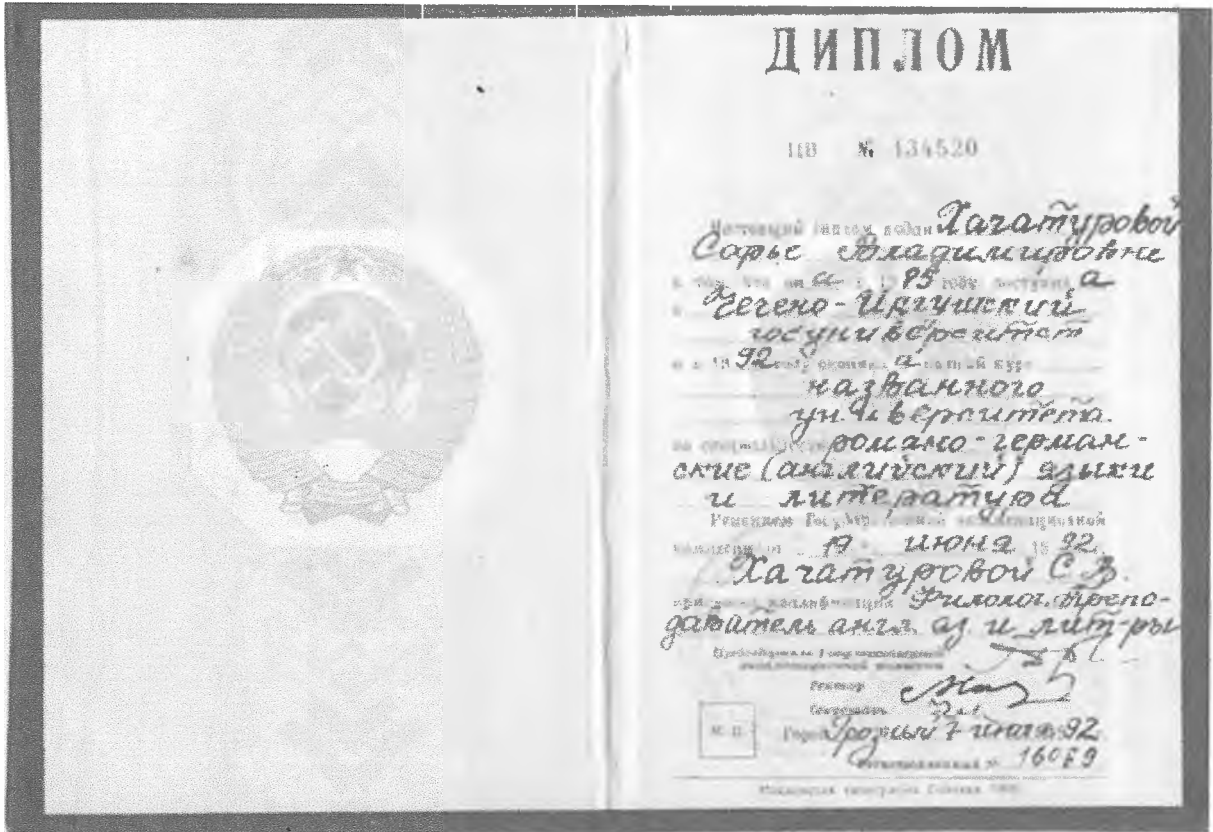 ДИПЛОМ
ЦВ № 134520
Настоящий диплом выдан Хачатуровой
Софье Владимировне
в том, что он а в 19 85 году поступил а
в Чечено-Ингушский
госуниверситет
и в 19 92 году окончил а полный курс
названного
университета
по специальности романо-герман-
ские (английский) языки
и литература
Решением Государственной экзаменационной
комиссии от 19 июня 19 92 г.
Хачатуровой С.В.
присвоена квалификация Филолог. Препо-
даватель англ. яз и лит-ры
Председатель Государственной
экзаменационной комиссии
Ректор
Секретарь
М. П. Город Грозный 7 19 92 г.
Регистрационный №
Московская типография Гознака